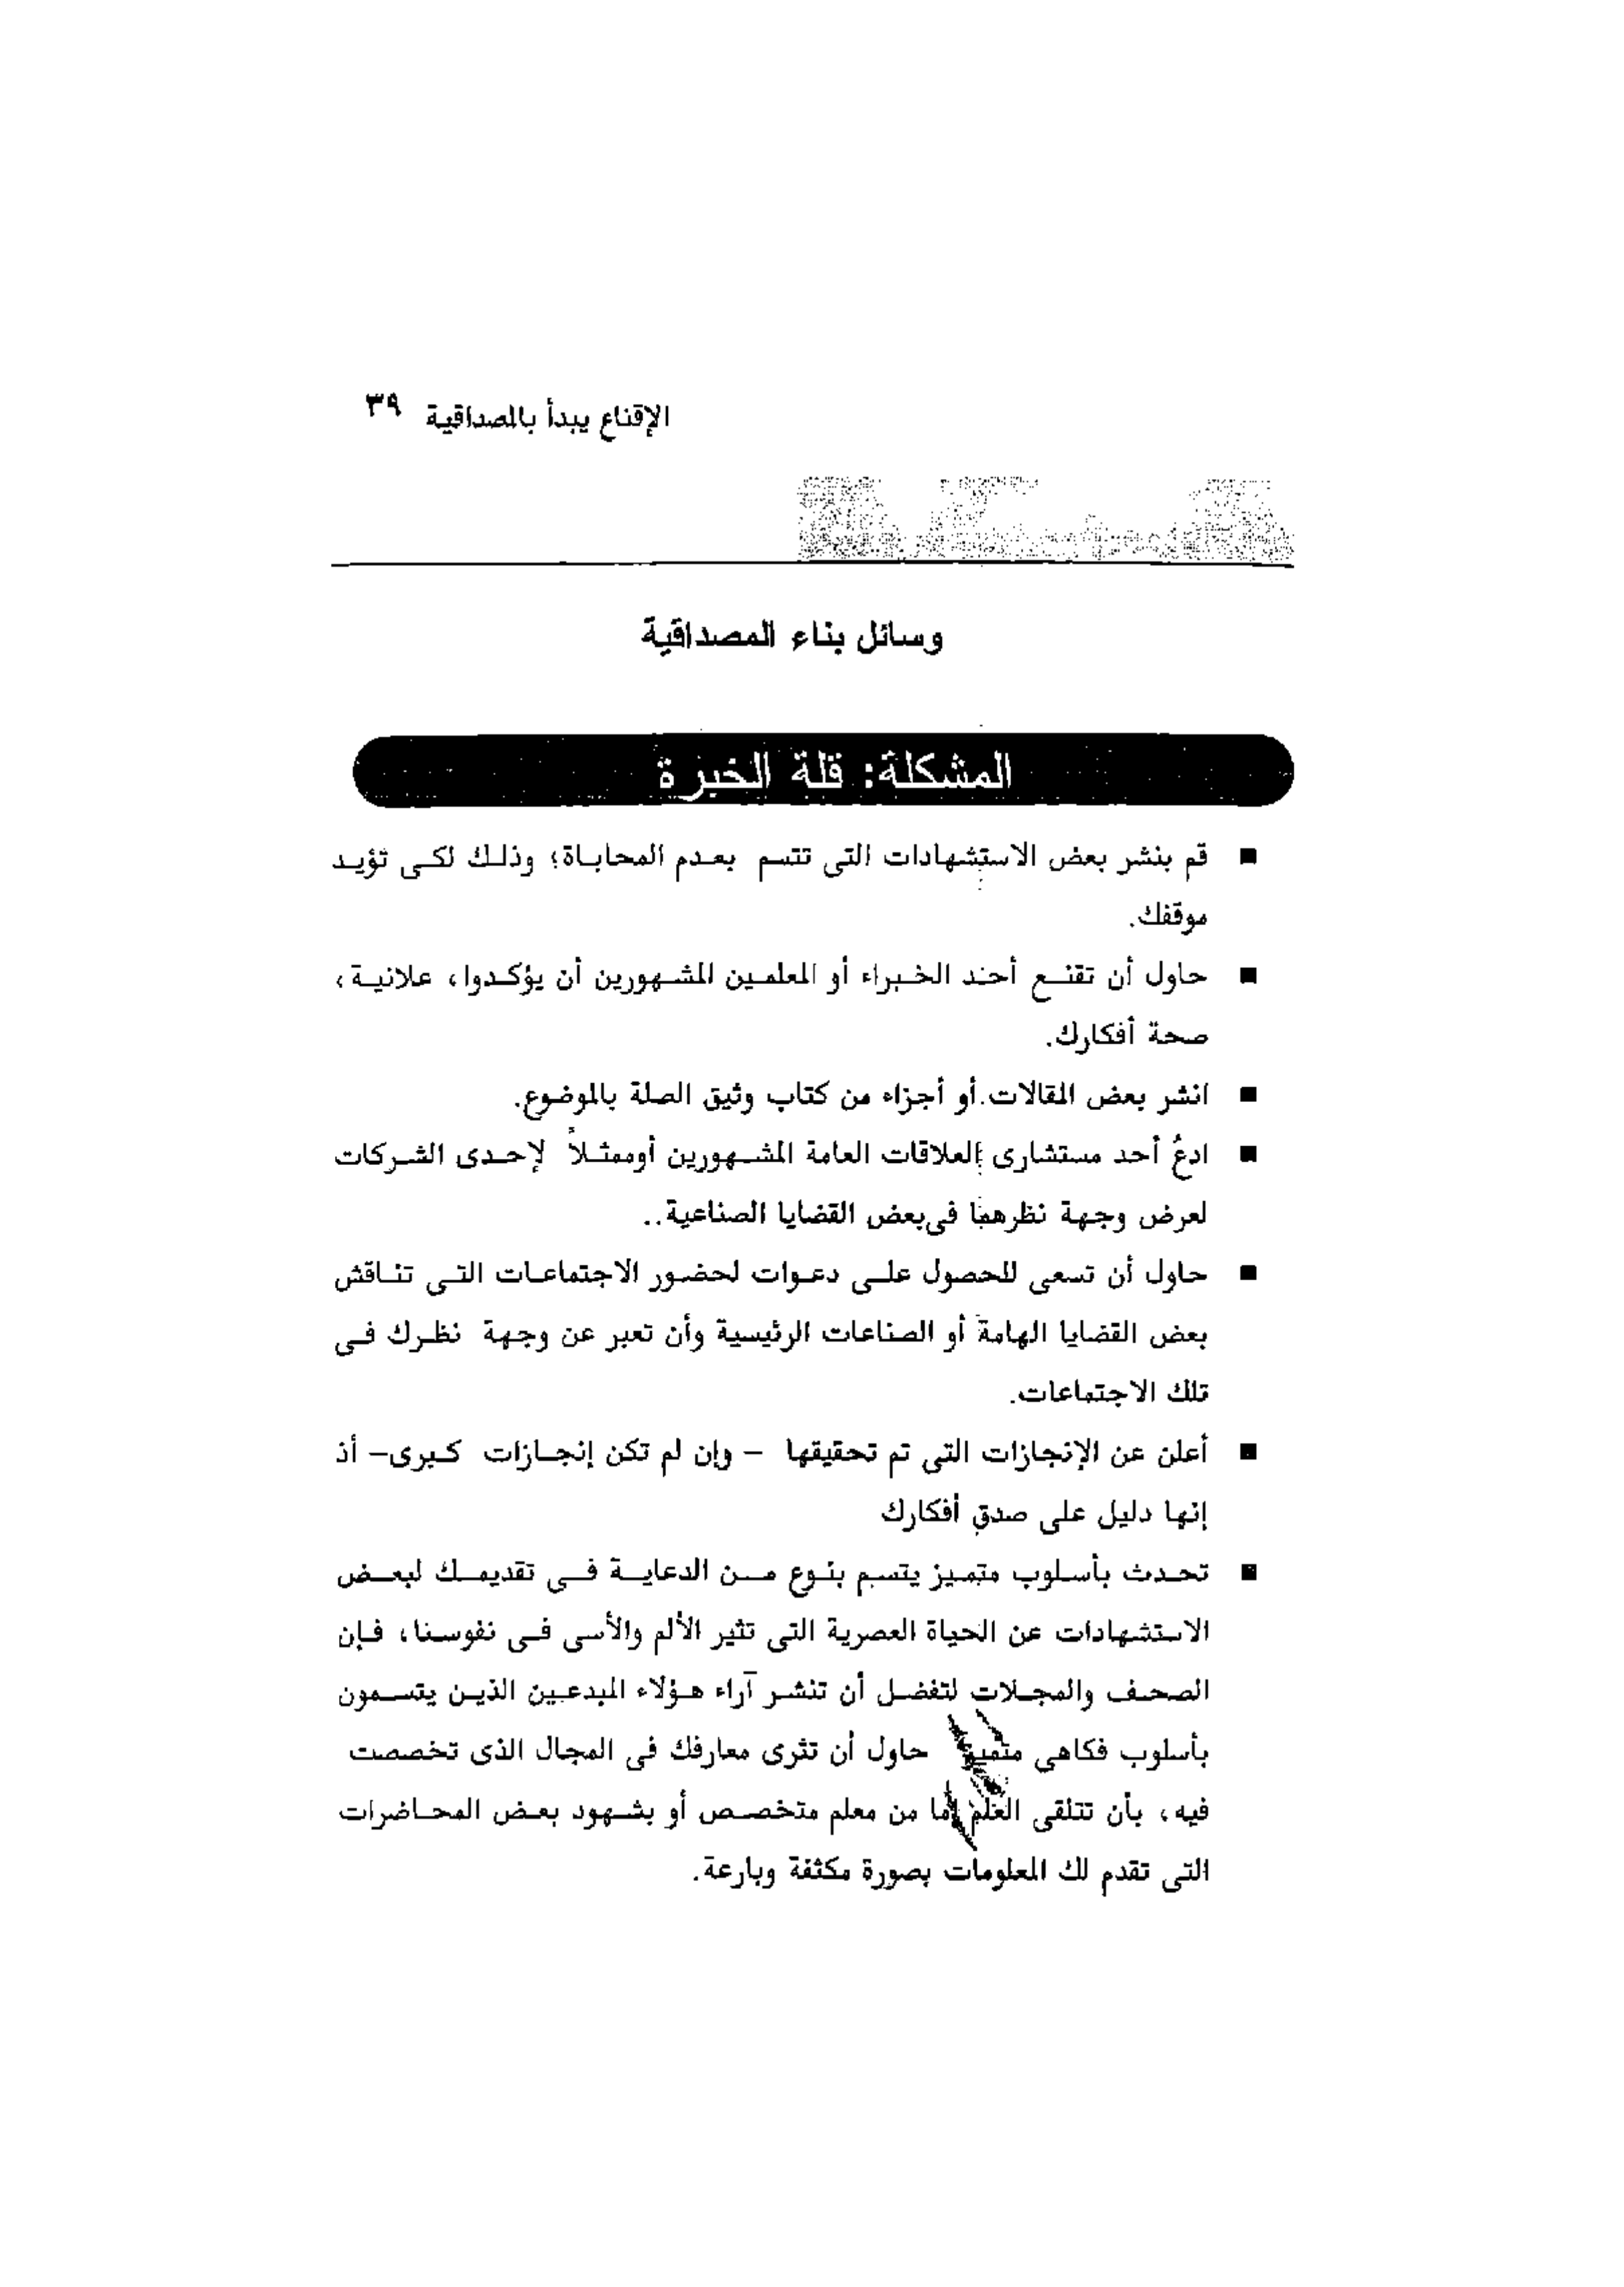 الإقناع يبدأ بالمصداقية ٣٩
وسائل بناء المصداقية
المشكلة: قلة الخبرة
■ قم بنشر بعض الاستشهادات التى تتسم بعدم المحاباة؛ وذلك لكى تؤيد
موقفك.
■ حاول أن تقنع أحد الخبراء أو المعلمين المشهورين أن يؤكدوا، علانية،
صحة أفكارك.
■ انشر بعض المقالات أو أجزاء من كتاب وثيق الصلة بالموضوع.
■ ادعُ أحد مستشارى العلاقات العامة المشهورين أوممثلاً لإحدى الشركات
لعرض وجهة نظرهما فى بعض القضايا الصناعية..
■ حاول أن تسعى للحصول على دعوات لحضور الاجتماعات التى تناقش
بعض القضايا الهامة أو الصناعات الرئيسية وأن تعبر عن وجهة نظرك فى
تلك الاجتماعات.
■ أعلن عن الإنجازات التى تم تحقيقها – وإن لم تكن إنجازات كبرى– أذ
إنها دليل على صدق أفكارك
■ تحدث بأسلوب متميز يتسم بنوع من الدعاية فى تقديمك لبعض
الاستشهادات عن الحياة العصرية التى تثير الألم والأسى فى نفوسنا، فإن
الصحف والمجلات لتفضل أن تنشر آراء هؤلاء المبدعين الذين يتسمون
بأسلوب فكاهى حاول أن تثرى معارفك فى المجال الذى تخصصت
فيه، بأن تتلقى العلم إما من معلم متخصص أو بشهود بعض المحاضرات
التى تقدم لك المعلومات بصورة مكثفة وبارعة.